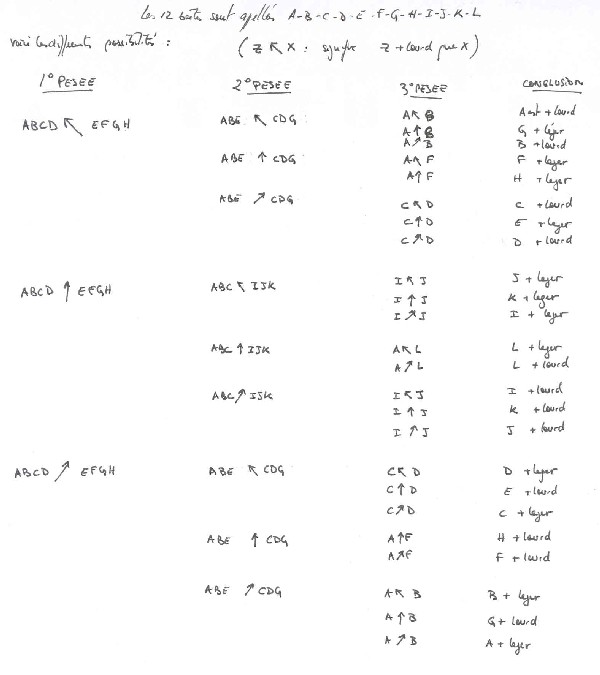 Les 12 boites sont appelées A-B-C-D-E-F-G-H-I-J-K-L
voici les différentes possibilités : (Z ↖ X : signifie Z + lourd que X)
1° PESEE 2° PESEE 3° PESEE CONCLUSION
ABCD ↖ EFGH ABE ↖ CDG A ↖ B A est + lourd
A ↑ B G + léger
A ↗ B B + lourd
ABE ↑ CDG A ↖ F F + leger
A ↑ F H + leger
ABE ↗ CDG C ↖ D C + lourd
C ↑ D E + leger
C ↗ D D + lourd
ABCD ↑ EFGH ABC ↖ IJK I ↖ J J + leger
I ↑ J K + leger
I ↗ J I + leger
ABC ↑ IJK A ↖ L L + leger
A ↗ L L + lourd
ABC ↗ IJK I ↖ J I + lourd
I ↑ J K + lourd
I ↑ J J + lourd
ABCD ↗ EFGH ABE ↖ CDG C ↖ D D + leger
C ↑ D E + lourd
C ↗ D C + leger
ABE ↑ CDG A ↑ F H + lourd
A ↗ F F + lourd
ABE ↗ CDG A ↖ B B + leger
A ↑ B G + lourd
A ↗ B A + leger